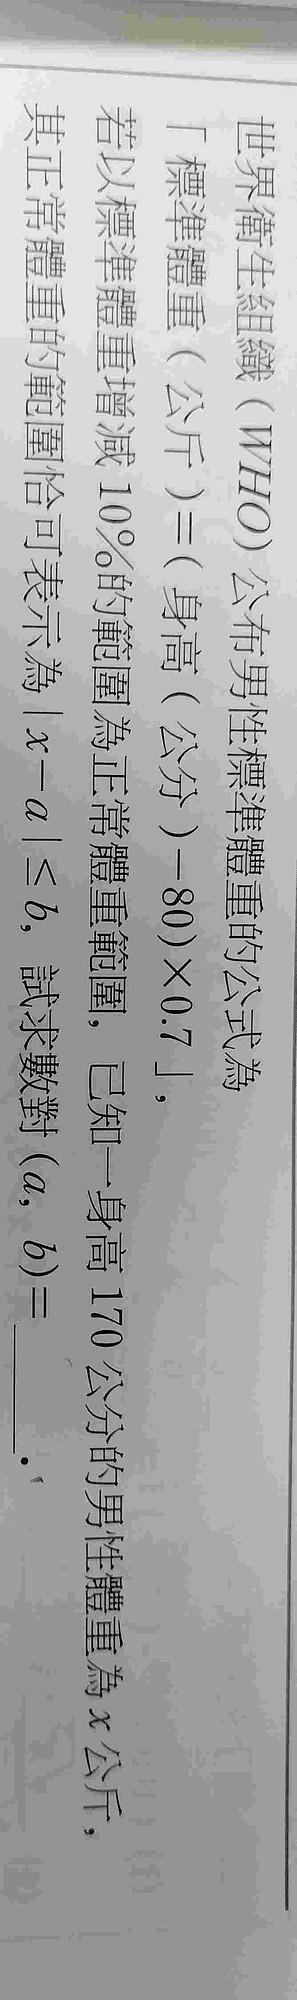 世界衛生組織(WHO)公布男性標準體重的公式為
「標準體重(公斤)=(身高(公分)-80)×0.7」,
若以標準體重增減10%的範圍為正常體重範圍,已知一身高170公分的男性體重為x公斤,
其正常體重的範圍恰可表示為|x-a|≤b,試求數對(a, b)=______.